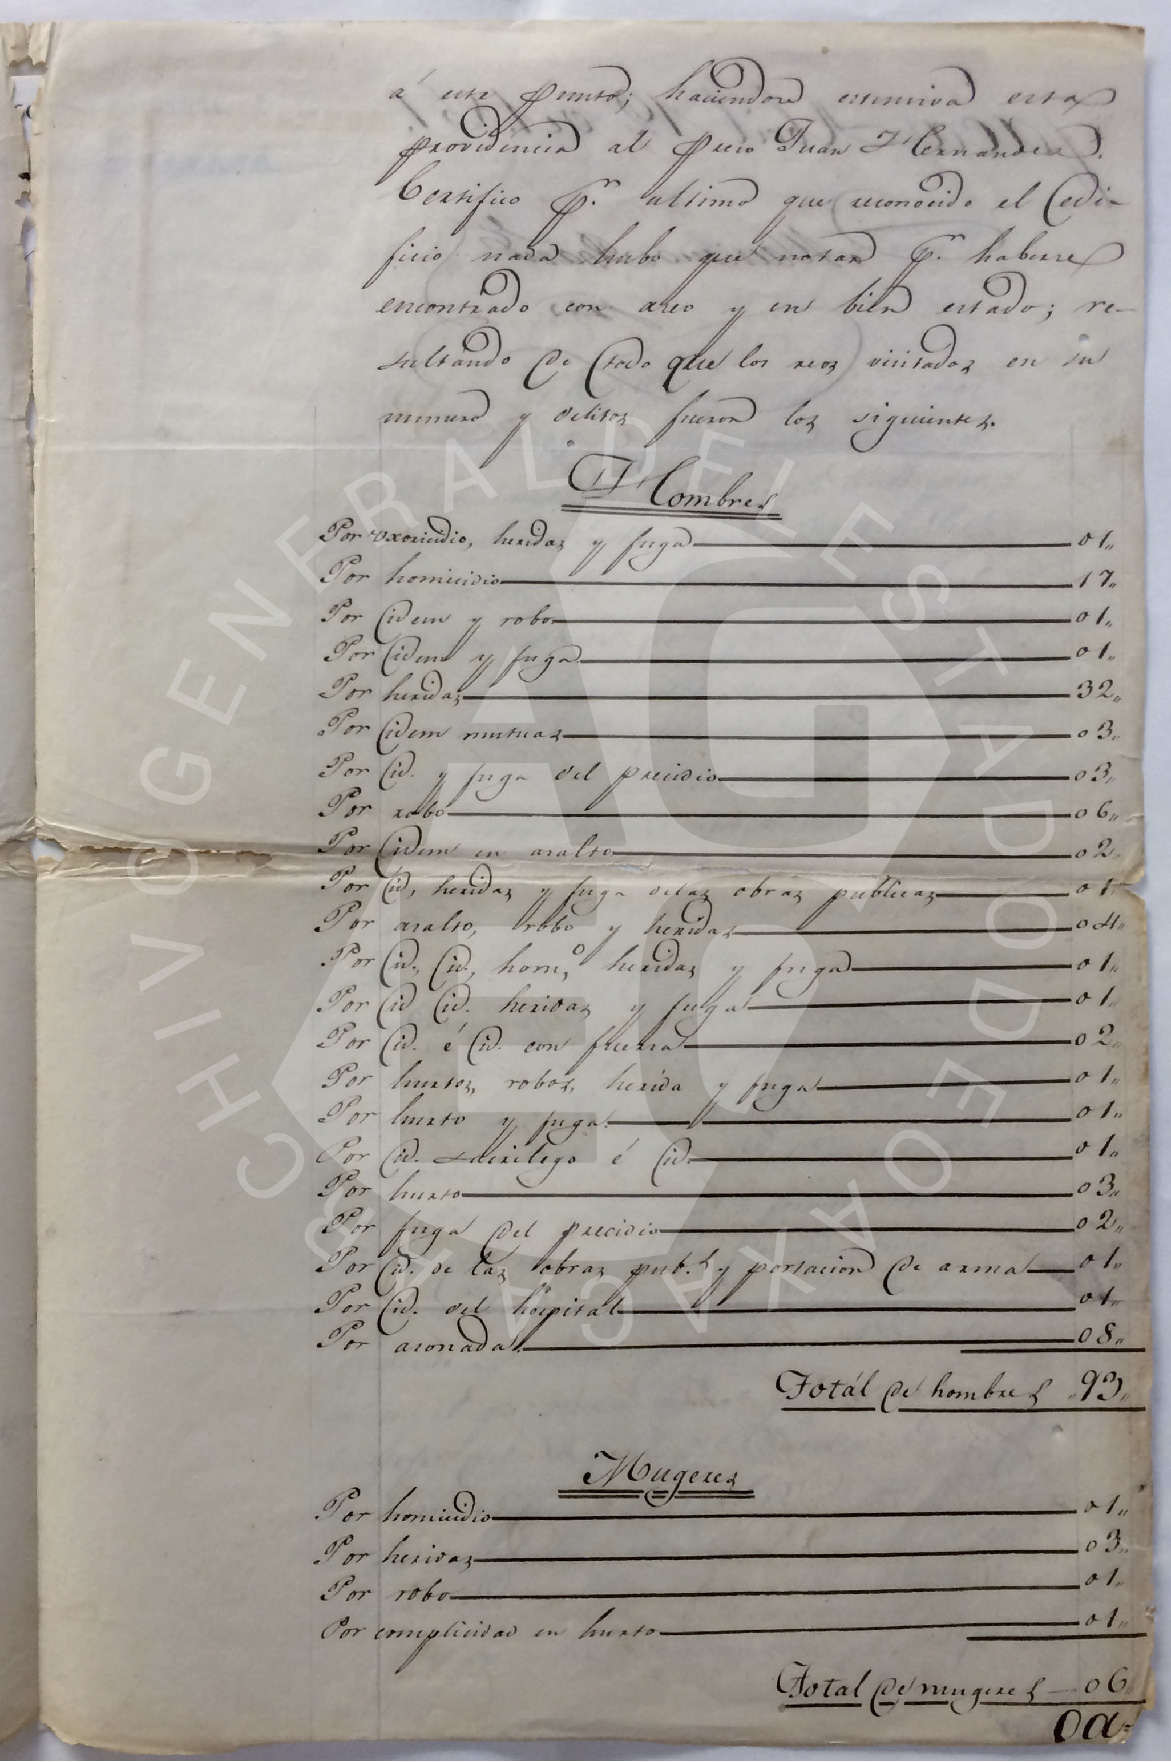 á este punto; haciendose estensiva esta
providencia al preso Juan Hernandez.
Certifico pr. ultimo que reconocido el edi-
ficio nada hubo que notar pr. haberse
encontrado con aseo y en bien estado; re-
sultando de todo que los reos visitados en su
numero y delitos fueron los siguientes.
Hombres
Por uxoricidio, heridas y fuga 01,,
Por homicidio 17,,
Por idem y robo 01,,
Por idem y fuga 01,,
Por heridas 32,,
Por idem mutuas 03,,
Por id. y fuga del precidio 03,,
Por robo 06,,
Por idem en asalto 02,,
Por id, heridas y fuga delas obras publicas 01,,
Por asalto, robo y heridas 04,,
Por id., id., hom,o heridas y fuga 01,,
Por id id. heridas y fuga 01,,
Por id. é id. con fuerza 02,,
Por hurtos, robos, herida y fuga 01,,
Por hurto y fuga 01,,
Por id. sacrilego é id. 01,,
Por hurto 03,,
Por fuga del precidio 02,,
Por id. de las obras pub.s y portacion de arma 01,,
Por id. del hospital 01,,
Por asonada 08,,
Totál de hombres 93,,
Mugeres
Por homicidio 01,,
Por heridas 03,,
Por robo 01,,
Por complicidad en hurto 01,,
Total de mugeres 06,,
ARCHIVO GENERAL DEL ESTADO DE OAXACA